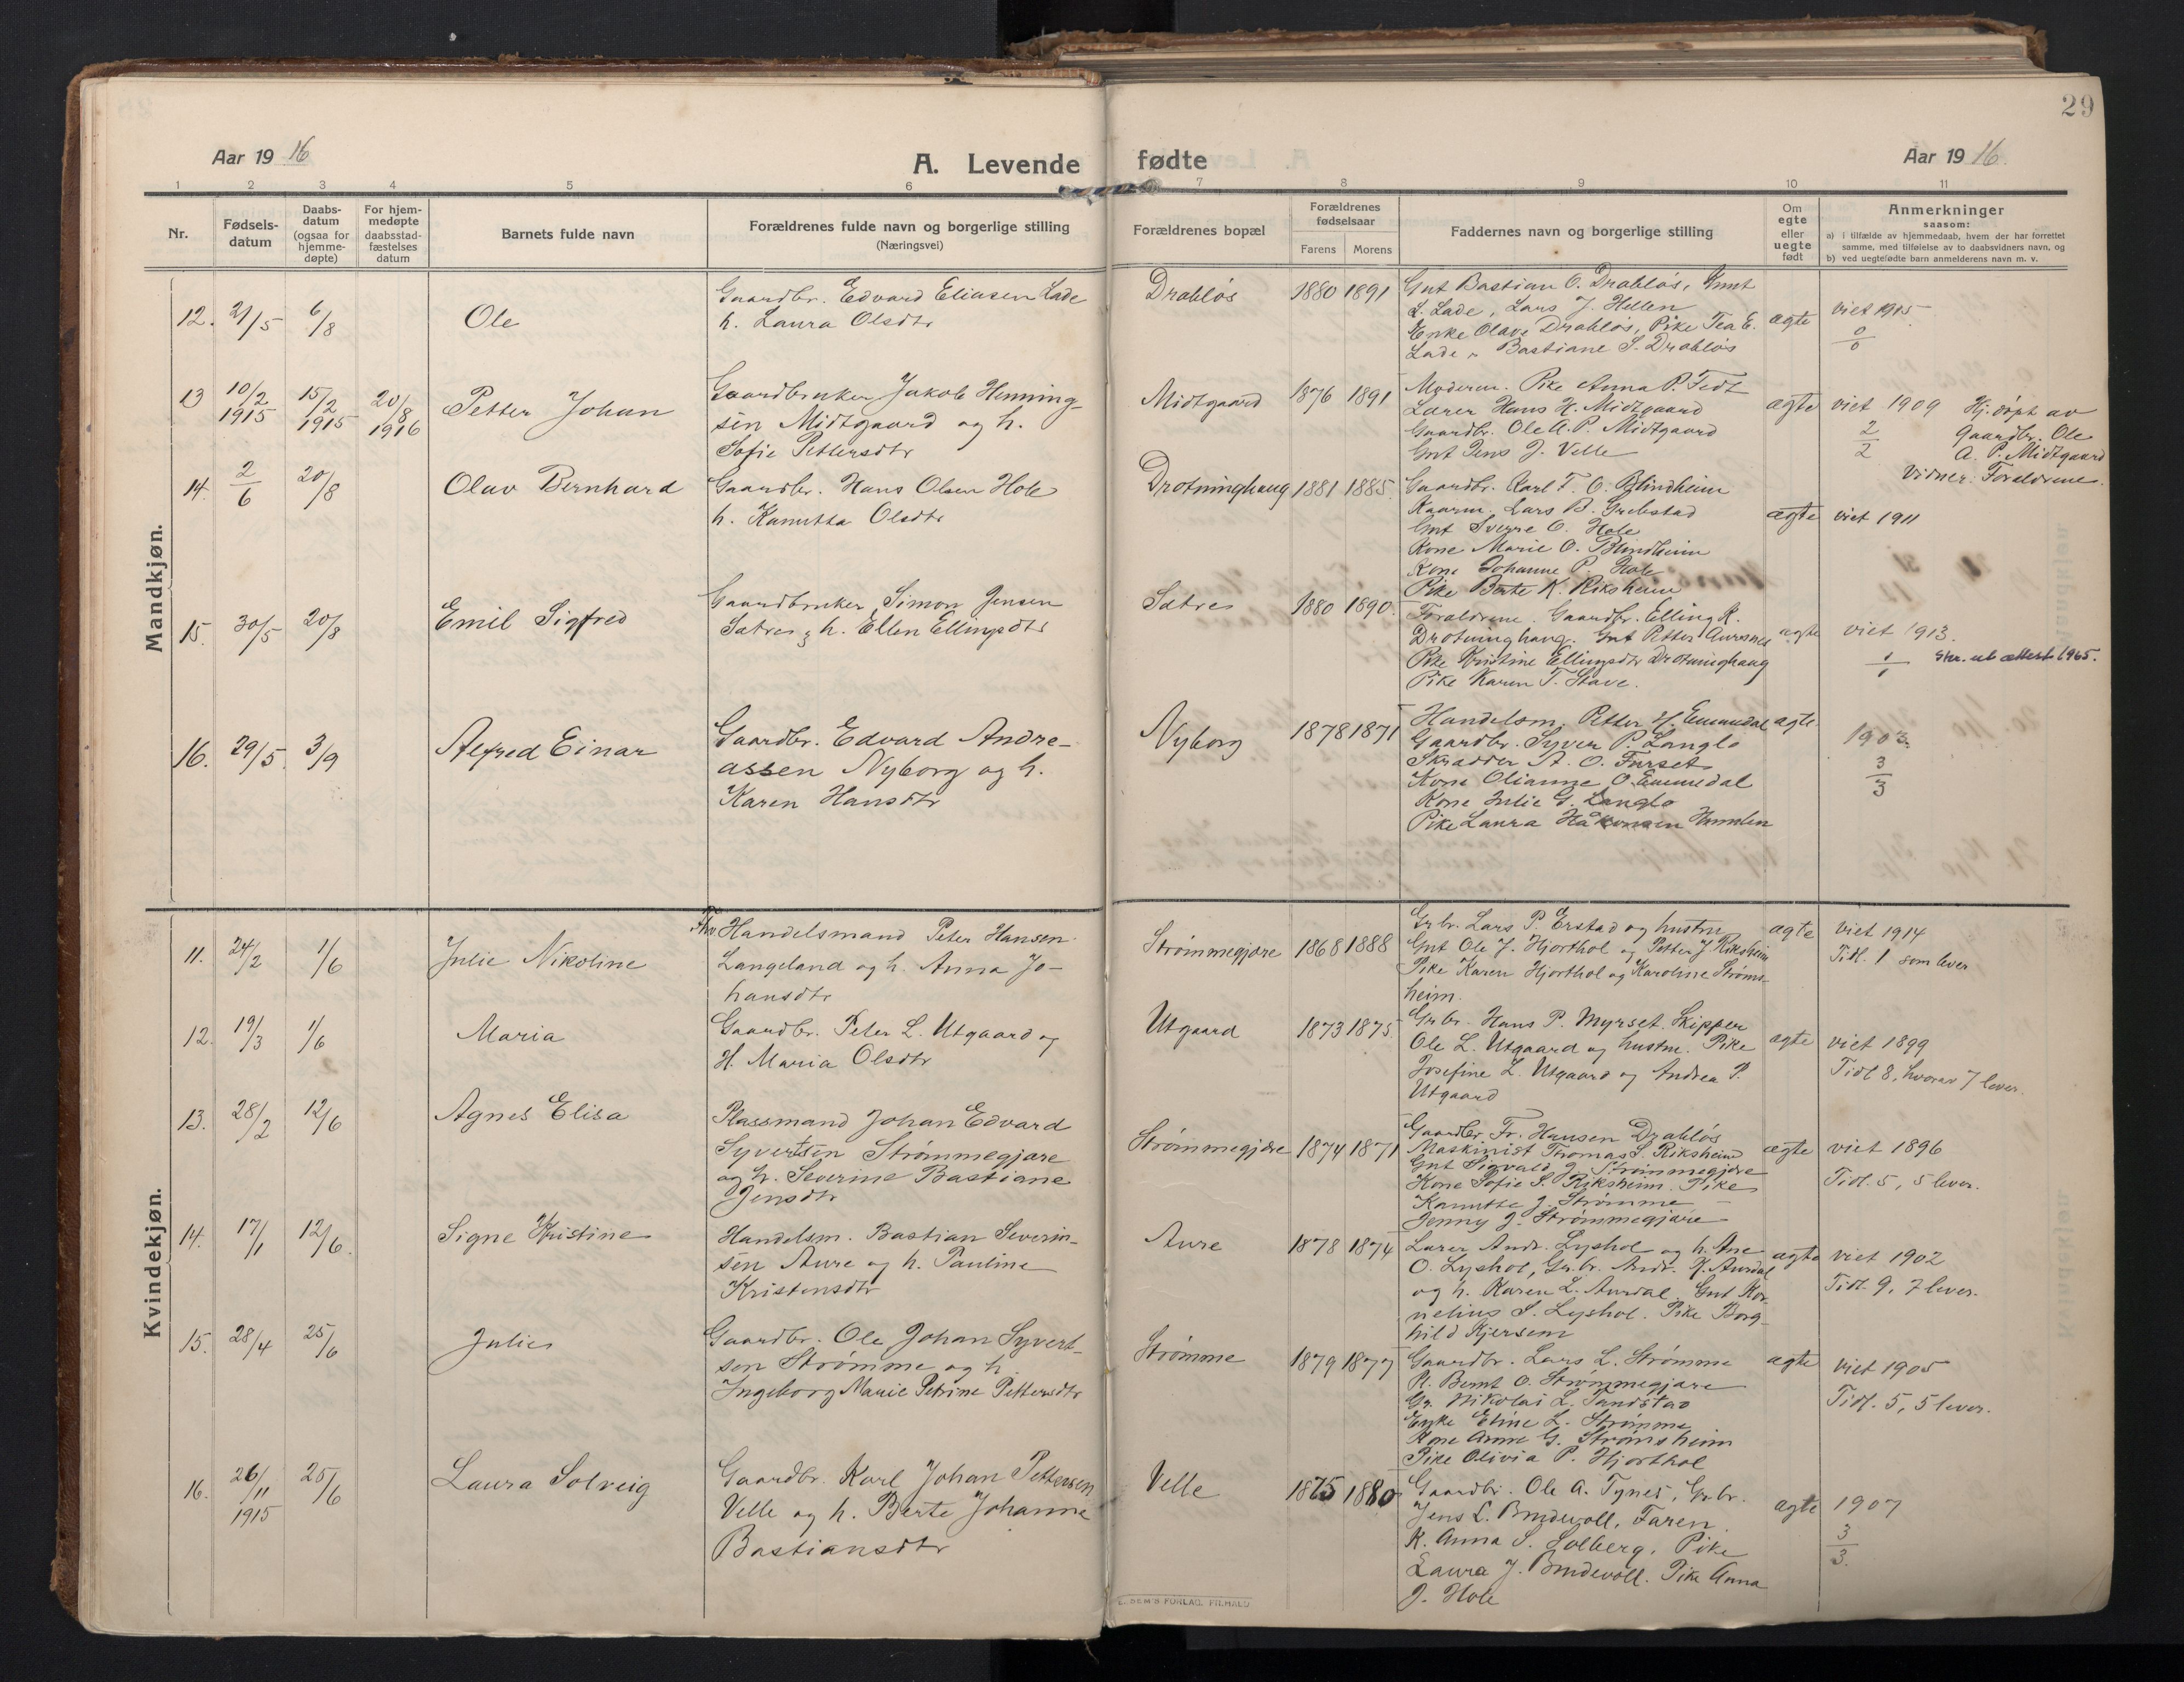 29
Aar 1916
A. Levende fødte
Aar 1916.
1 2 3 4 5 6 7 8 9 10 11
Nr.
Fødsels-
datum
Daabs-
datum
(ogsaa for
hjemme-
døpte)
For hjem-
medøpte
daabsstad-
fæstelses
datum
Barnets fulde navn
Forældrenes fulde navn og borgerlige stilling
(Næringsvei)
Forældrenes bopæl
Forældrenes
fødselsaar
Farens Morens
Faddernes navn og borgerlige stilling
Om
egte
eller
uegte
født
Anmerkninger
saasom:
a) i tilfælde av hjemmedaab, hvem der har forrettet
samme, med tilføielse av to daabsvidners navn, og
b) ved uegtefødte barn anmelderens navn m. v.
Mandkjøn.
12. 21/5 6/8
Ole
Gaardbr. Edvard Eliasen Lade
h. Laura Olsdtr
Drabløs
1880 1891
Gut Bastian O. Drabløs, Gunt
L. Lade, Lars J. Hellen
Enke Olave Drabløs, Pike Tea E.
Lade, Bastiane S. Drabløs
ægte
viet 1915
0/0
13 10/2 1915 15/2 1915 20/8 1916
Petter Johan
Gaardbruker Jakob Henning-
sen Midtgaard og h.
Sofie Pettersdtr
Midtgaard
1876 1891
Moderen. Pike Anna P. Fedt
Lærer Hans H. Midtgaard
Gaardbr. Ole A. P. Midtgaard
Gut Jens J. Velle
ægte
viet 1909
2/2
Hj. døpt av
Gaardbr. Ole
A. P. Midtgaard
Vidner: Forældrene.
14. 2/6 20/8
Olav Bernhard
Gaardbr. Hans Olsen Hole
h. Kanutta Olsdtr
Drotninghaug
1881 1885
Gaardbr. Karl T. O. Blindheim
Kaarm. Lars B. Grebstad
Gut Sverre O. Hole
Kone Marie O. Blindheim
Kone Johanne P. Hole
Pike Berte K. Riksheim
ægte
viet 1911
15. 30/5 20/8
Emil Sigfred
Gaardbruker Simon Jensen
Sætre, h. Ellen Ellingsdtr
Sætre
1880 1890.
Forældrene. Gaardbr. Elling K.
Drotninghaug. Gut Petter Aursnes
Pike Kristine Ellingsdtr Drotninghaug
Pike Karen T. Stave.
ægte
viet 1913.
1/1
Skr. ut attest 1965.
16. 29/5 3/9
Alfred Einar
Gaardbr. Edvard Andre-
assen Nyborg og h.
Karen Hansdtr
Nyborg
1878 1871
Handelsm. Petter H. Emmedal
Gaardbr. Syver P. Langlo
Skrædder A. O. Furset
Kone Olianne O. Emmedal
Kone Julie G. Langlo
Pike Laura Håkonsen Humlen
ægte
1903.
3/3
Kvindekjøn.
11. 24/2 1/6
Julie Nikoline
Handelsmand Peter Hansen
Langeland og h. Anna Jo-
hansdtr
Strømmegjære
1868 1888
Gr.br. Lars P. Erstad og hustru
Gut Ole J. Hjorthol og Petter J. Riksheim
Pike Karen Hjorthol og Karoline Strøms-
heim.
ægte
viet 1914
Tidl. 1 som lever
12. 19/3 1/6
Maria
Gaardbr. Peter L. Utgaard og
H. Maria Olsdtr
Utgaard
1873 1875.
Gr.br. Hans P. Myrset. Skipper
Ole L. Utgaard og hustru. Pike
Josefine L. Utgaard og Andrea P.
Utgaard
ægte
viet 1899
Tidl 8, hvorav 7 lever.
13. 28/2 12/6
Agnes Elisa
Plassmand Johan Edvard
Syvertsen Strømmegjære
og h. Severine Bastiane
Jensdtr
Strømmegjære
1874 1871
Gaardbr. Fr. Hansen Drabløs
Maskinist Thomas S. Riksheim
Gut Sigvald J. Strømmegjære
Kone Sofie S. Riksheim. Pike
Kanutte J. Strømme
Jenny J. Strømmegjære
ægte
viet 1896
Tidl. 5, 5 lever.
14. 17/1 12/6.
Signe Kristine
Handelsm. Bastian Severin-
sen Aure og h. Pauline
Kristensdtr
Aure
1878 1874
Lærer Andr. Lyshol og h. Ane
O. Lyshol, Gr.br. Andr. K. Aurdal
og h. Karen L. Aurdal. Gut Kor-
nelius S. Lyshol. Pike Borg-
hild Kjersem
ægte
viet 1902
Tidl. 9, 7 lever.
15. 28/4 25/6
Julie
Gaardbr. Ole Johan Syvert-
sen Strømme og h.
Ingeborg Marie Petrine Pettersdtr
Strømme
1879 1877
Gaardbr. Lars L. Strømme
Pl. Bernt O. Strømmegjære
Gr. Nikolai L. Tandstad
Enke Eline L. Strømme
Kone Anne G. Strømsheim
Pike Olivia P. Hjorthol
ægte
viet 1905
Tidl. 5, 5 lever.
16. 26/11 1915 25/6
Laura Solveig
Gaardbr. Karl Johan Pettersen
Velle og h. Berte Johanne
Bastiansdtr
Velle
1875 1880
Gaardbr. Ole A. Tynes, Gr.br.
Jens L. Brudevoll, Faren.
K. Anna S. Solberg. Pike
Laura J. Brudevoll. Pike Anna
J. Hole
ægte
1907
3/3.
SEM'S FORLAG, FR.HALD